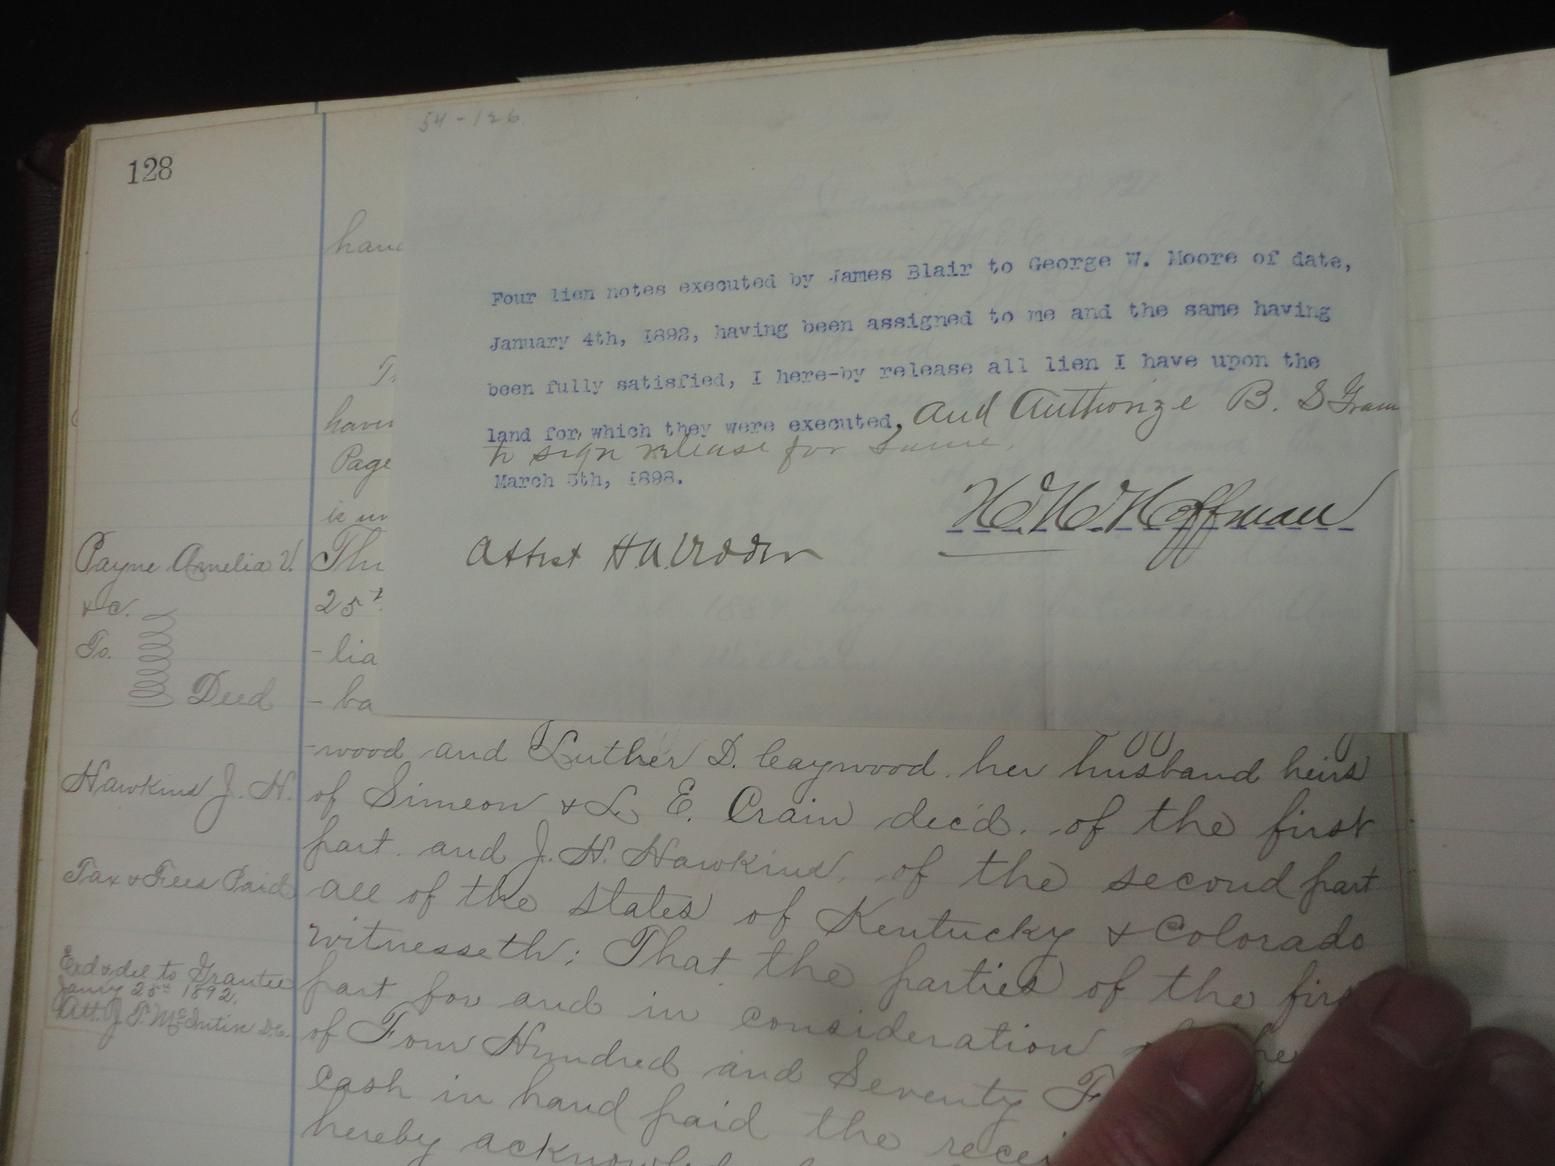 54-126
128
Four lien notes executed by James Blair to George W. Moore of date,
January 4th, 1892, having been assigned to me and the same having
been fully satisfied, I here-by release all lien I have upon the
land for which they were executed, and Authorize B. S
to sign release for same.
March 5th, 1898.
Hoffman
Attest
Page
Payne Amelia V.
&c.
To.
Deed
Hawkins J. H.
Tax & Fees Paid
Exd & del to Grantee
Jany 25th 1892.
Att. J. P. McIntire D.C.
25th
-lia
-ba
-wood and Luther D. Caywood. her husband heirs
of Simeon & L E. Crain dec'd. of the first
part. and J. H. Hawkins. of the second part
all of the states of Kentucky & Colorado
witnesseth; That the parties of the first
part for and in consideration
of Four Hundred and Seventy F
cash in hand paid the recei
hereby